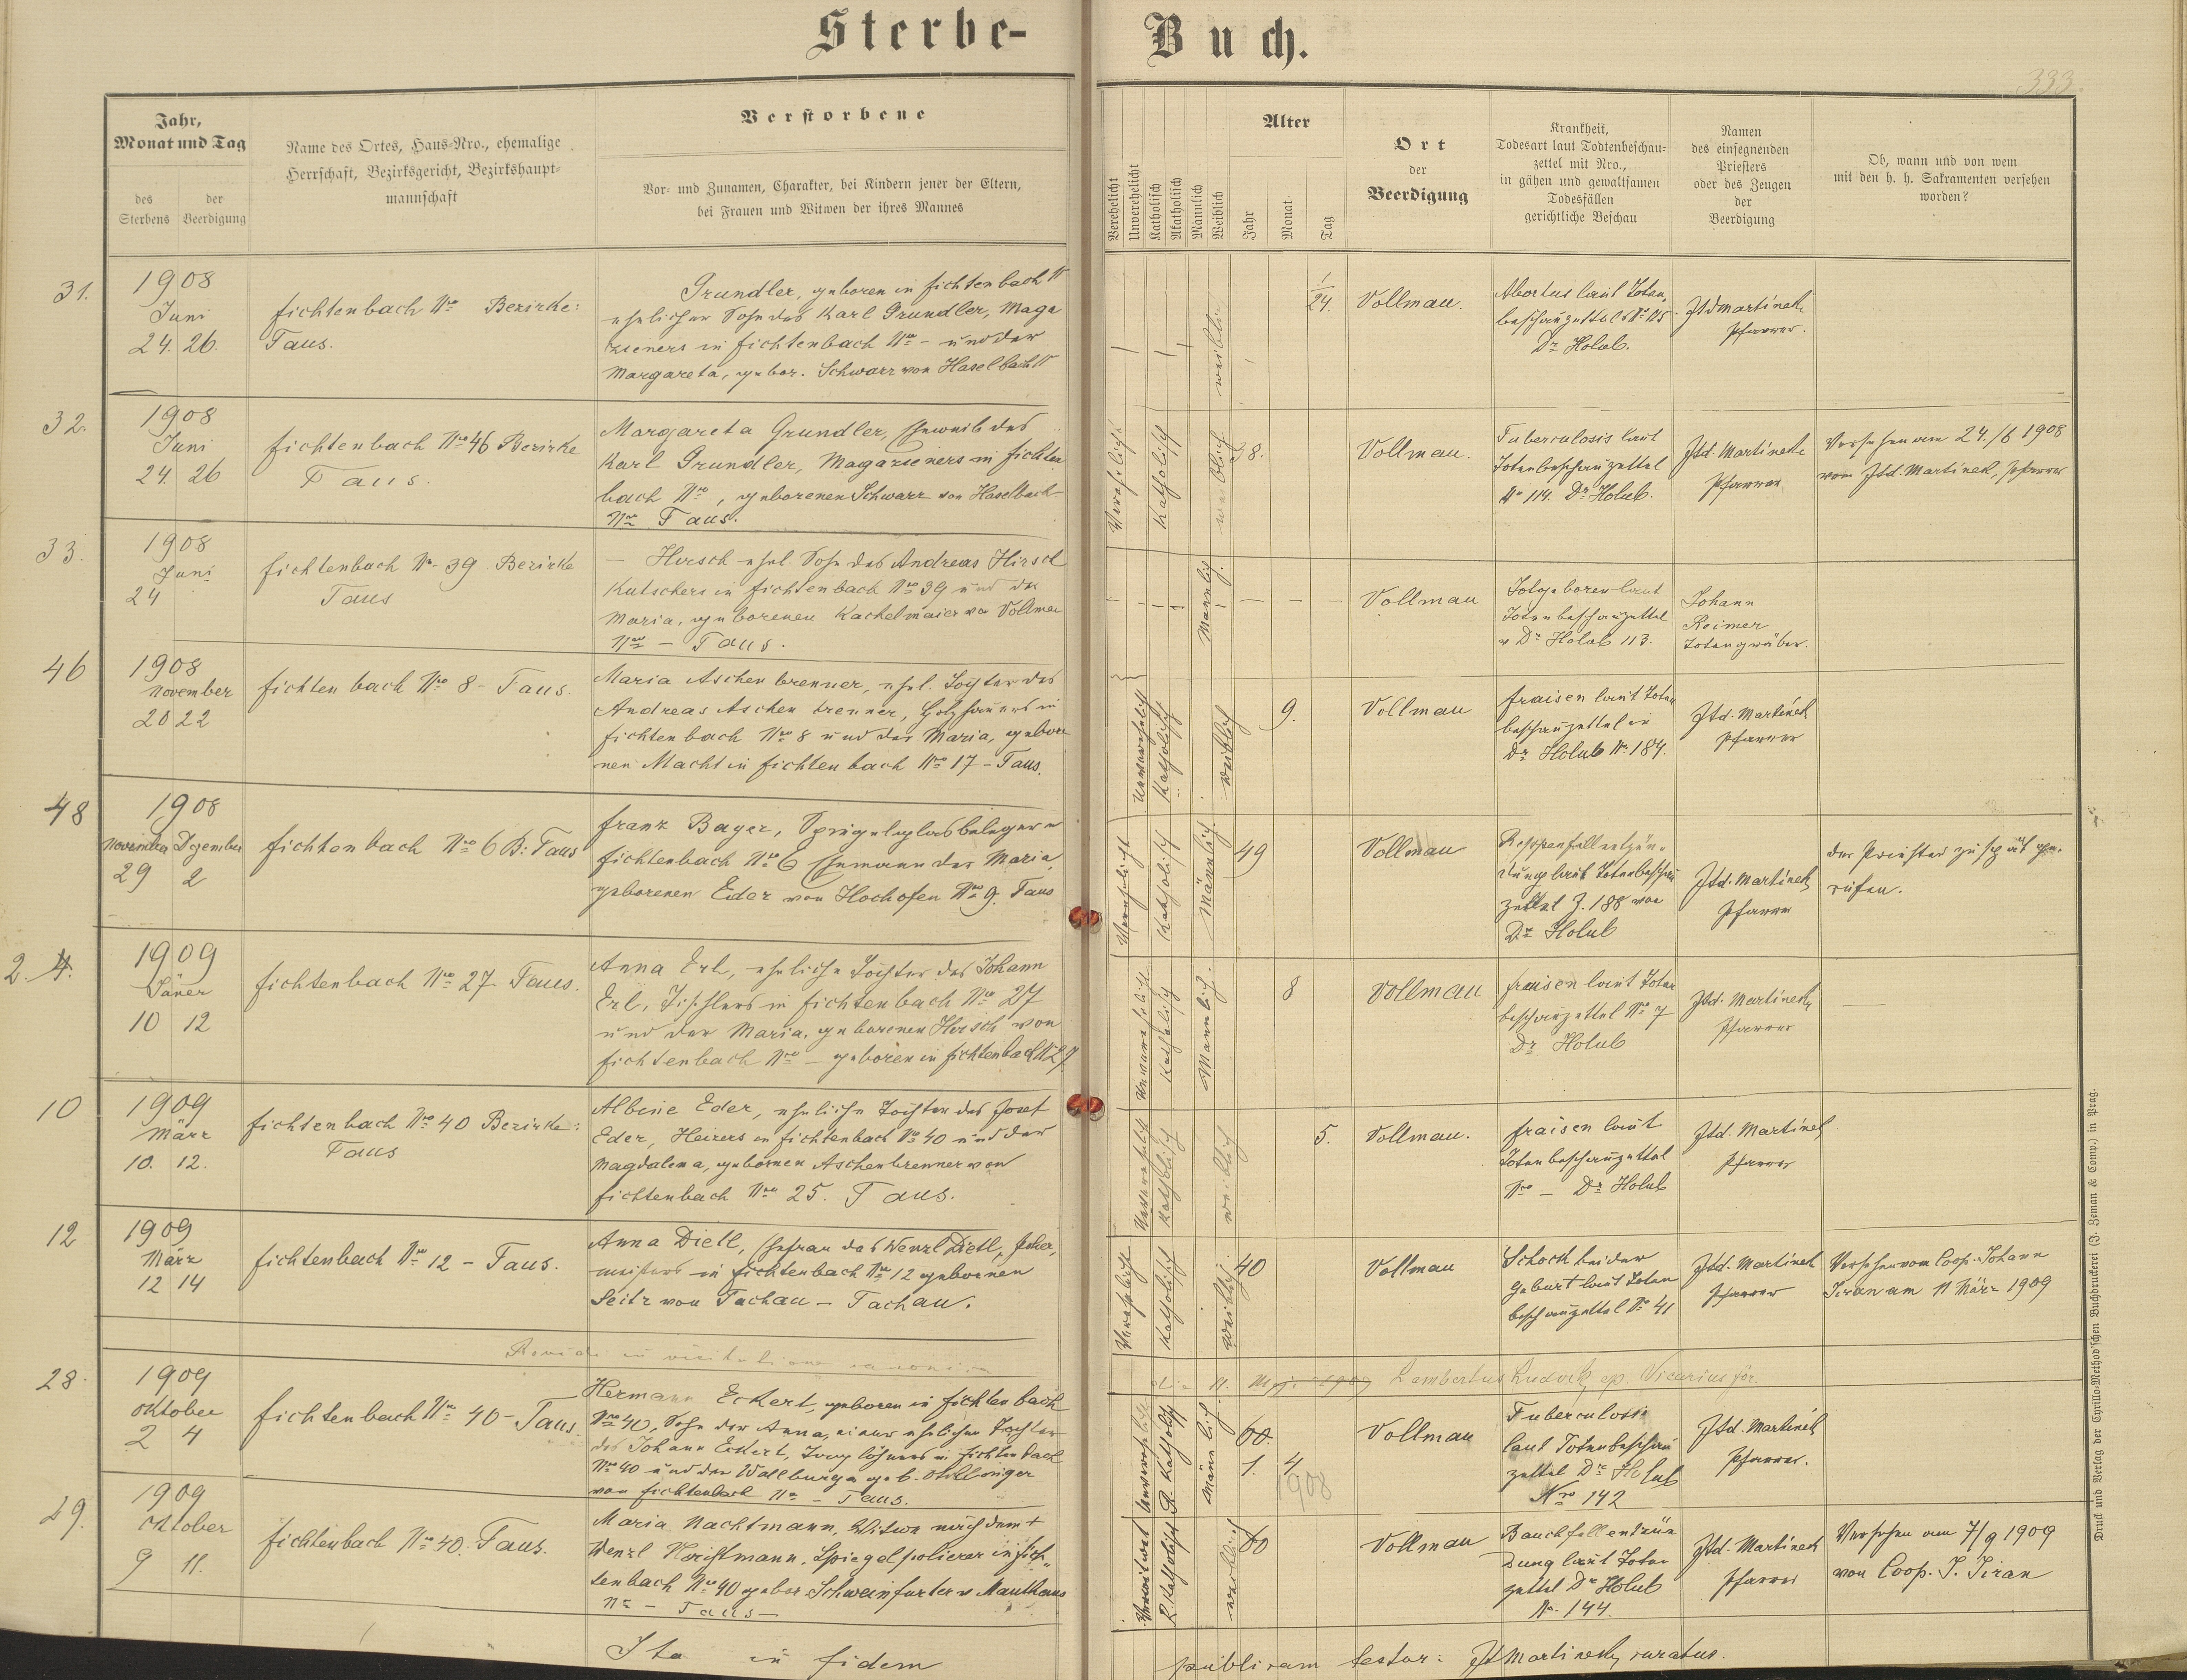 Sterbe-Buch.
333
Jahr,
Monat und Tag
des Sterbens
der Beerdigung
Name des Ortes, Haus-Nro., ehemalige
Herrschaft, Bezirksgericht, Bezirkshaupt-
mannschaft
Verstorbene
Vor- und Zunamen, Charakter, bei Kindern jener der Eltern,
bei Frauen und Witwen der ihres Mannes
Verehelicht
Unverehelicht
Katholisch
Akatholisch
Männlich
Weiblich
Alter
Jahr
Monat
Tag
Ort
der
Beerdigung
Krankheit,
Todesart laut Todtenbeschau-
zettel mit Nro.,
in gähen und gewaltsamen
Todesfällen
gerichtliche Beschau
Namen
des einsegnenden
Priesters
oder des Zeugen
der
Beerdigung
Ob, wann und von wem
mit den h. h. Sakramenten versehen
worden?
31.
1908
Juni
24. 26.
Fichtenbach Nro Bezirke:
Taus.
Grundler, geboren in Fichtenbach
ehelicher Sohn des Karl Grundler, Maga
zieners in Fichtenbach Nro - und der
Margareta, gebor. Schwarz von Haselbach
1/24.
Vollmau.
Abortus laut Toten
beschauzettels No 115
Dr Holub.
Jtd Martínek
Pfarrer.
32.
1908
Juni
24. 26
Fichtenbach Nro 46 Bezirke
Taus.
Margareta Grundler, Eheweib des
Karl Grundler, Magazieners in Fichten
bach Nro, geborenen Schwarz von Haselbach
Nro Taus.
Verehelicht
Katholisch
weiblich
38.
Vollmau.
Tuberculosis laut
Totenbeschauzettel
No 114. Dr Holub.
Jtd. Martínek
Pfarrer
Versehen am 24./6 1908
vom Jtd. Martínek, Pfarrer
33.
1908
Juni
24
Fichtenbach No 39 Bezirke
Taus
— Hirsch ehel. Sohn des Andreas Hirsch
Kutschers in Fichtenbach Nro 39 und der
Maria, geborenen Kachelmaier von Vollmau
Nro — Taus.
Männlich.
Vollmau
Totgeboren laut
Totenbeschauzettel
v Dr Holub 113.
Johann
Reimer
Totengräber.
46
1908
November
20 22
Fichtenbach Nro 8 - Taus.
Maria Aschenbrenner, ehel. Tochter des
Andreas Aschenbrenner, Holzhauers in
Fichtenbach Nro 8 und der Maria, gebore
nen Macht in Fichtenbach Nro 17 - Taus.
Unverehelicht
Katholisch
weiblich
9.
Vollmau
Fraisen laut Toten
beschauzettel
Dr Holub No 184.
Jtd. Martínek
Pfarrer
48
1908
November Dezember
29 2
Fichtenbach Nro 6 B: Taus
Franz Bayer, Spiegelglasbeleger in
Fichtenbach Nro 6 Ehemann der Maria,
geborenen Eder von Hochofen No 9. Taus
Verehelicht
Katholisch
Männlich.
49
Vollmau
Rippenfellentzün-
dung laut Totenbeschau
zettel Z. 188 von
Dr Holub
Jtd. Martínek
Pfarrer
der Priester zu spät ge-
rufen.
2. 4.
1909
Jäner
10 12
Fichtenbach Nro 27. Taus.
Anna Erl, eheliche Tochter des Johann
Erl, Tischlers in Fichtenbach No 27
und der Maria, geborenen Hirsch von
Fichtenbach Nro — geboren in Fichtenbach N 27
Unverehelicht
Katholisch
Männlich.
8
Vollmau
Fraisen laut Toten
beschauzettel No 7
Dr Holub
Jtd. Martínek
Pfarrer
10
1909
März
10. 12.
Fichtenbach Nro 40 Bezirke:
Taus
Albine Eder, eheliche Tochter des Josef
Eder, Heizers in Fichtenbach No 40 und der
Magdalena, gebornen Aschenbrenner von
Fichtenbach Nro 25. Taus.
Unverehelicht
Katholisch
weiblich
5.
Vollmau.
Fraisen laut
Totenbeschauzettel
Nro — Dr Holub
Jtd. Martínek
Pfarrer
12
1909
März
12 14
Fichtenbach Nro 12 - Taus.
Anna Dietl, Ehefrau des Wenzl Dietl,
meisters in Fichtenbach Nro 12 gebornen
Seitz von Tachau - Tachau.
Verehelicht
Katholisch
weiblich
40
Vollmau
Schock bei der
Geburt laut Toten
beschauzettel No 41
Jtd. Martínek
Pfarrer
Versehen vom Coop. Johann
Jiran am 11 März 1909
in visitatione canonica
1909 Lambertus Vicarius for.
28.
1909
Oktober
2 4
Fichtenbach Nro 40 - Taus.
Hermann Eckert, geboren in Fichtenbach
Nro 40, Sohn der Anna, einer ehelichen Tochter
des Johann Eckert, Taglöhners in Fichtenbach
No 40 und der Wallburga geb.
von Fichtenbach No - Taus.
Unverehelicht
R. Katholisch
Männlich.
60.
1. 4
1908
Vollmau
Tuberculosis
laut Totenbeschau
zettel Dr Holub
Nro 142
Jtd. Martínek
Pfarrer.
29.
1909
Oktober
9 11.
Fichtenbach No 40. Taus.
Maria Nachtmann, Witwe nach dem +
Wenzl Nachtmann, Spiegelpolierer in Fich-
tenbach Nro 40 gebor. Schweinfurter v Mauthaus
No - Taus -
Verwitwet
R. Katholisch
weiblich
60
Vollmau
Bauchfellentzün
dung laut Toten
zettel Dr Holub
No 144.
Jtd. Martínek
Pfarrer
Versehen am 7/9 1909
von Coop. J. Jiran
Ita in fidem publicam testor: Jt Martínek, curatus.
Druck und Verlag der Cyrillo-Method'schen Buchdruckerei (J. Zeman & Comp.) in Prag.